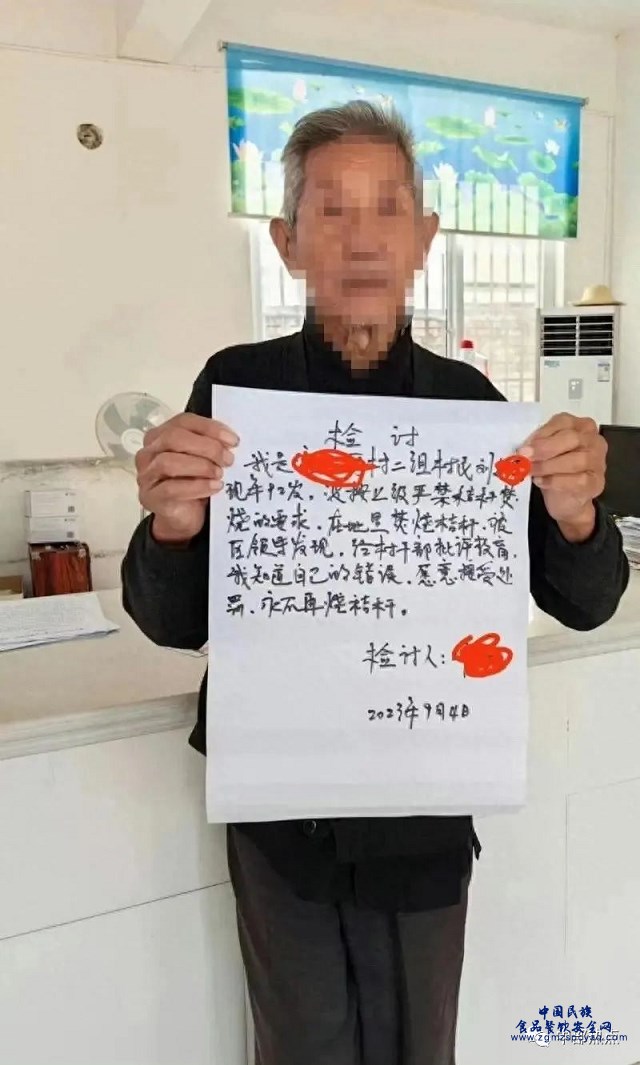 检讨
我是 村二组村民刘
现年92岁，没按上级严禁桔杆焚
烧的要求，在地里焚烧桔杆，被
区领导发现，给村干部批评教育，
我知道自己的错误，愿意接受处
罚，永不再烧桔杆。
检讨人：
2023年9月4日
中国民族
食品餐饮安全网
www.zgmzspcyaq.com